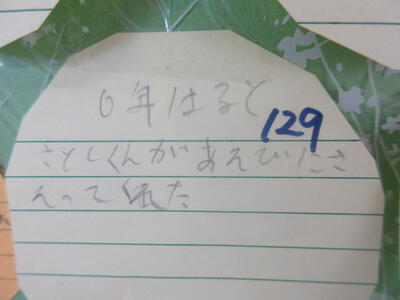 6年はると
129
さとしくんがあそびにさ
そって くれた